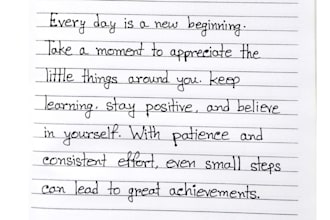 Every day is a new beginning.
Take a moment to appreciate the
little things around you. keep
learning. stay positive, and believe
in yourself. With patience and
consistent effort, even small steps
can lead to great achievements.